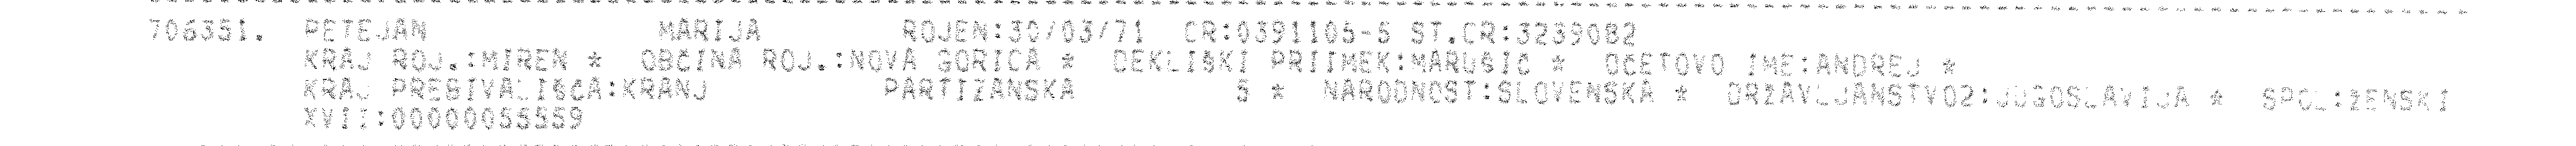 706351. PETEJAN MARIJA ROJEN:30/03/71 CR:0391105-5 ST.CR:3239082
KRAJ ROJ.:MIREN * OBČINA ROJ.:NOVA GORICA * DEKLIŠKI PRIIMEK:MARUŠIČ * OČETOVO IME:ANDREJ *
KRAJ PREBIVALIŠČA:KRANJ PARTIZANSKA 5 * NARODNOST:SLOVENSKA * DRŽAVLJANSTVO2:JUGOSLAVIJA * SPOL:ŽENSKI
XVII:00000055559